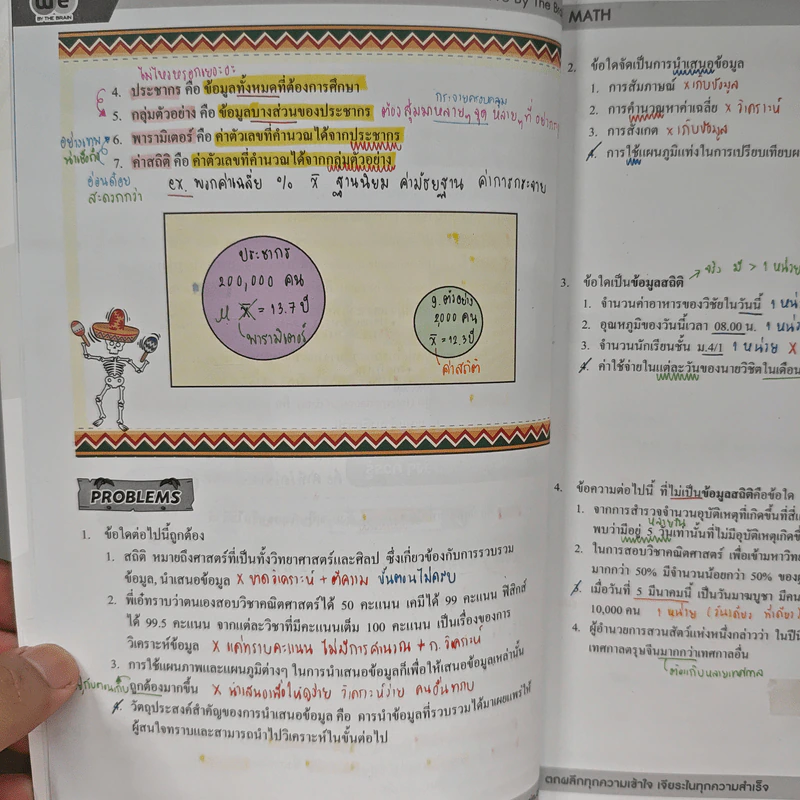 WE
BY THE BRAIN
By The Brain
MATH
ไม่ไหวหรอกเยอะอะ
4. ประชากร คือ ข้อมูลทั้งหมดที่ต้องการศึกษา
กระจายครอบคลุม
5. กลุ่มตัวอย่าง คือ ข้อมูลบางส่วนของประชากร ต้องสุ่มมาหลายๆ จุด หลายๆ ที่
6. พารามิเตอร์ คือ ค่าตัวเลขที่คำนวณได้จากประชากร
7. ค่าสถิติ คือ ค่าตัวเลขที่คำนวณได้จากกลุ่มตัวอย่าง
สะดวกกว่า
ex. พวกค่าเฉลี่ย % x̄ ฐานนิยม ค่ามัธยฐาน ค่าการกระจาย
ประชากร
200,000 คน
μ x̄ = 13.7 ปี
พารามิเตอร์
ก.ตัวอย่าง
2,000 คน
x̄ = 12.3 ปี
ค่าสถิติ
PROBLEMS
1. ข้อใดต่อไปนี้ถูกต้อง
1. สถิติ หมายถึงศาสตร์ที่เป็นทั้งวิทยาศาสตร์และศิลป ซึ่งเกี่ยวข้องกับการรวบรวม
ข้อมูล, นำเสนอข้อมูล x ขาดวิเคราะห์ + ตีความ ขั้นตอนไม่ครบ
2. พี่เอ๋ทราบว่าตนเองสอบวิชาคณิตศาสตร์ได้ 50 คะแนน เคมีได้ 99 คะแนน ฟิสิกส์
ได้ 99.5 คะแนน จากแต่ละวิชาที่มีคะแนนเต็ม 100 คะแนน เป็นเรื่องของการ
วิเคราะห์ข้อมูล x แค่ทราบคะแนน ไม่มีการคำนวณ + ก.วิเคราะห์
3. การใช้แผนภาพและแผนภูมิต่างๆ ในการนำเสนอข้อมูลก็เพื่อให้เสนอข้อมูลเหล่านั้น
ถูกต้องมากขึ้น x นำเสนอเพื่อให้ดูง่าย วิเคราะห์ง่าย
4. วัตถุประสงค์สำคัญของการนำเสนอข้อมูล คือ การนำข้อมูลที่รวบรวมได้มาเผยแพร่ให้
ผู้สนใจทราบและสามารถนำไปวิเคราะห์ในขั้นต่อไป
2. ข้อใดจัดเป็นการนำเสนอข้อมูล
1. การสัมภาษณ์ x เก็บข้อมูล
2. การคำนวณหาค่าเฉลี่ย x วิเคราะห์
3. การสังเกต x เก็บข้อมูล
4. การใช้แผนภูมิแท่งในการเปรียบเทียบ
มี > 1 หน่วย
3. ข้อใดเป็นข้อมูลสถิติ
1. จำนวนค่าอาหารของวิชัยในวันนี้ 1
2. อุณหภูมิของวันนี้เวลา 08.00 น. 1
3. จำนวนนักเรียนชั้น ม.4/1 1 หน่วย x
4. ค่าใช้จ่ายในแต่ละวันของนายวิชิตในเดือน
4. ข้อความต่อไปนี้ ที่ไม่เป็นข้อมูลสถิติคือข้อใด
1. จากการสำรวจจำนวนอุบัติเหตุที่เกิดขึ้นที่
หลายวัน
พบว่ามีอยู่ 5 วันเท่านั้นที่ไม่มีอุบัติเหตุ
2. ในการสอบวิชาคณิตศาสตร์ เพื่อเข้ามหาวิท
มากกว่า 50% มีจำนวนน้อยกว่า 50% ของ
3. เมื่อวันที่ 5 มีนาคมนี้ เป็นวันมาฆบูชา มีคน
10,000 คน 1 หน่วย (วันเดียว ที่เดียว)
4. ผู้อำนวยการสวนสัตว์แห่งหนึ่งกล่าวว่า ในปี
เทศกาลตรุษจีนมากกว่าเทศกาลอื่น
ต้องเก็บหลายเทศกาล
ตกผลึกทุกความเข้าใจ เจียระไนทุกความสำเร็จ